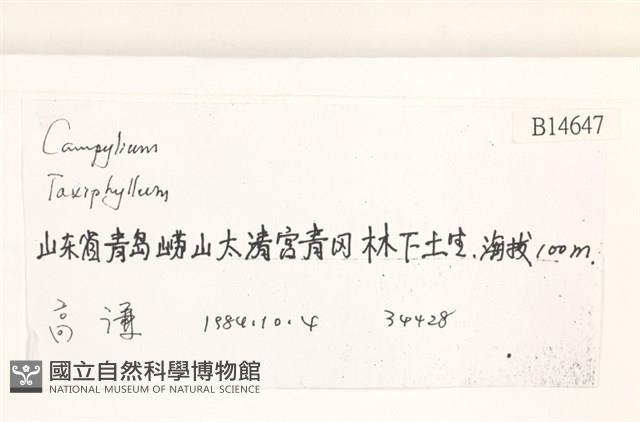 B14647
Campylium
Taxiphyllum
山东省青岛崂山太清宫青冈林下土生.海拔100m.
高谦 1984.10.4 34428
國立自然科學博物館
NATIONAL MUSEUM OF NATURAL SCIENCE